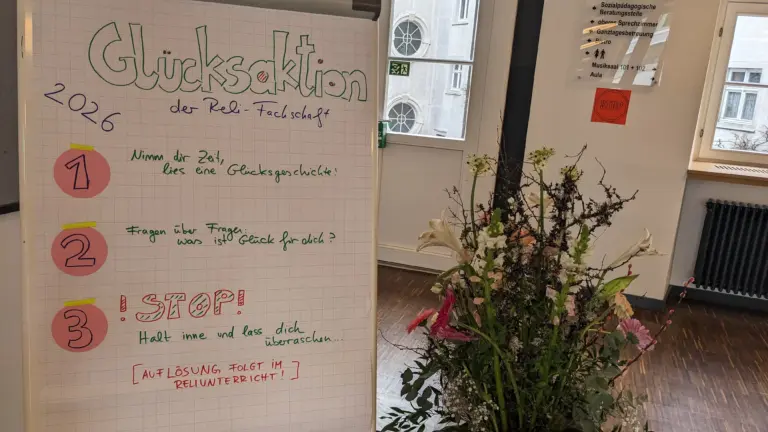 Glücksaktion
2026
der Reli-Fachschaft
1
Nimm dir Zeit,
lies eine Glücksgeschichte!
2
Fragen über Fragen:
was ist Glück für dich?
3
! STOP!
Halt inne und lass dich
überraschen...
[AUFLÖSUNG FOLGT IM
RELIUNTERRICHT!]
Sozialpädagogische
Beratungsstelle
Sprechzimmer
Ganztagesbetreuung
Musiksaal 101 + 102
Aula